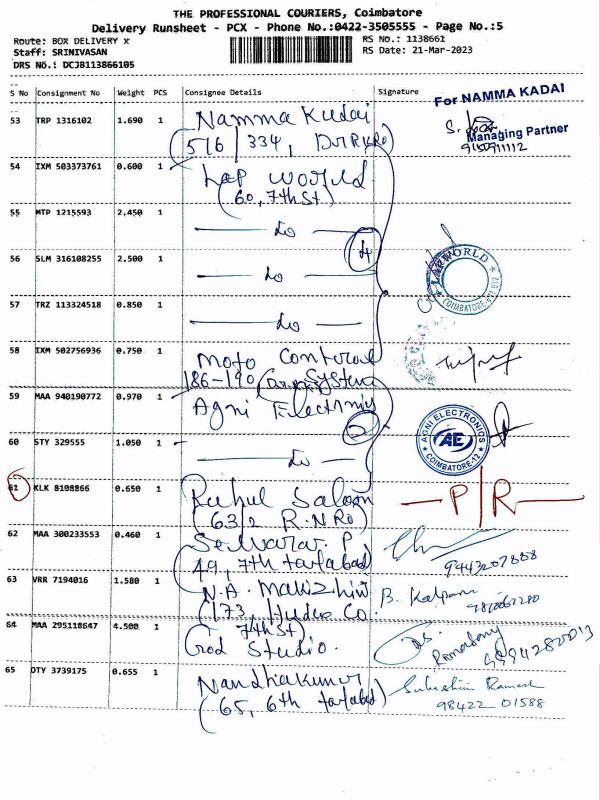 THE PROFESSIONAL COURIERS, Coimbatore
Delivery Runsheet - PCX - Phone No.:0422-3505555 - Page No.:5
Route: BOX DELIVERY x
RS No.: 1138661
Staff: SRINIVASAN
RS Date: 21-Mar-2023
DRS No.: DCJB113866105
S No Consignment No Weight PCS Consignee Details Signature
For NAMMA KADAI
53 TRP 1316102 1.690 1 Namma Kadai
Managing Partner
(576/334, DVRKRo)
9150911112
54 IXM 503373761 0.600 1 Lap World
(60, 7th St)
55 MTP 1215593 2.450 1 Do
4
56 SLM 316108255 2.500 1 Do
LAP WORLD
COIMBATORE-641 012
57 TRZ 113324518 0.850 1 Do
58 IXM 502756936 0.750 1 Moto Control
186-190 System
59 MAA 940190772 0.970 1 Agni Electronics
2
AGNI ELECTRONICS
AE
COIMBATORE-12
60 STY 329555 1.050 1 Do
61 KLK 8108866 0.650 1 Rahul Saloon P/R
(63/2 R.N Ro)
62 MAA 300233553 0.460 1 Selvaraj. P
(49, 7th tatabad
9443207888
63 VRR 7194016 1.580 1 N.A. Makizhin B. Kalpana
(173, Hudco Co.
7th St)
64 MAA 295118647 4.500 1 God Studio.
9994282013
65 OTY 3739175 0.655 1 Nandhakumar
(65, 6th tatabad)
98422 01588